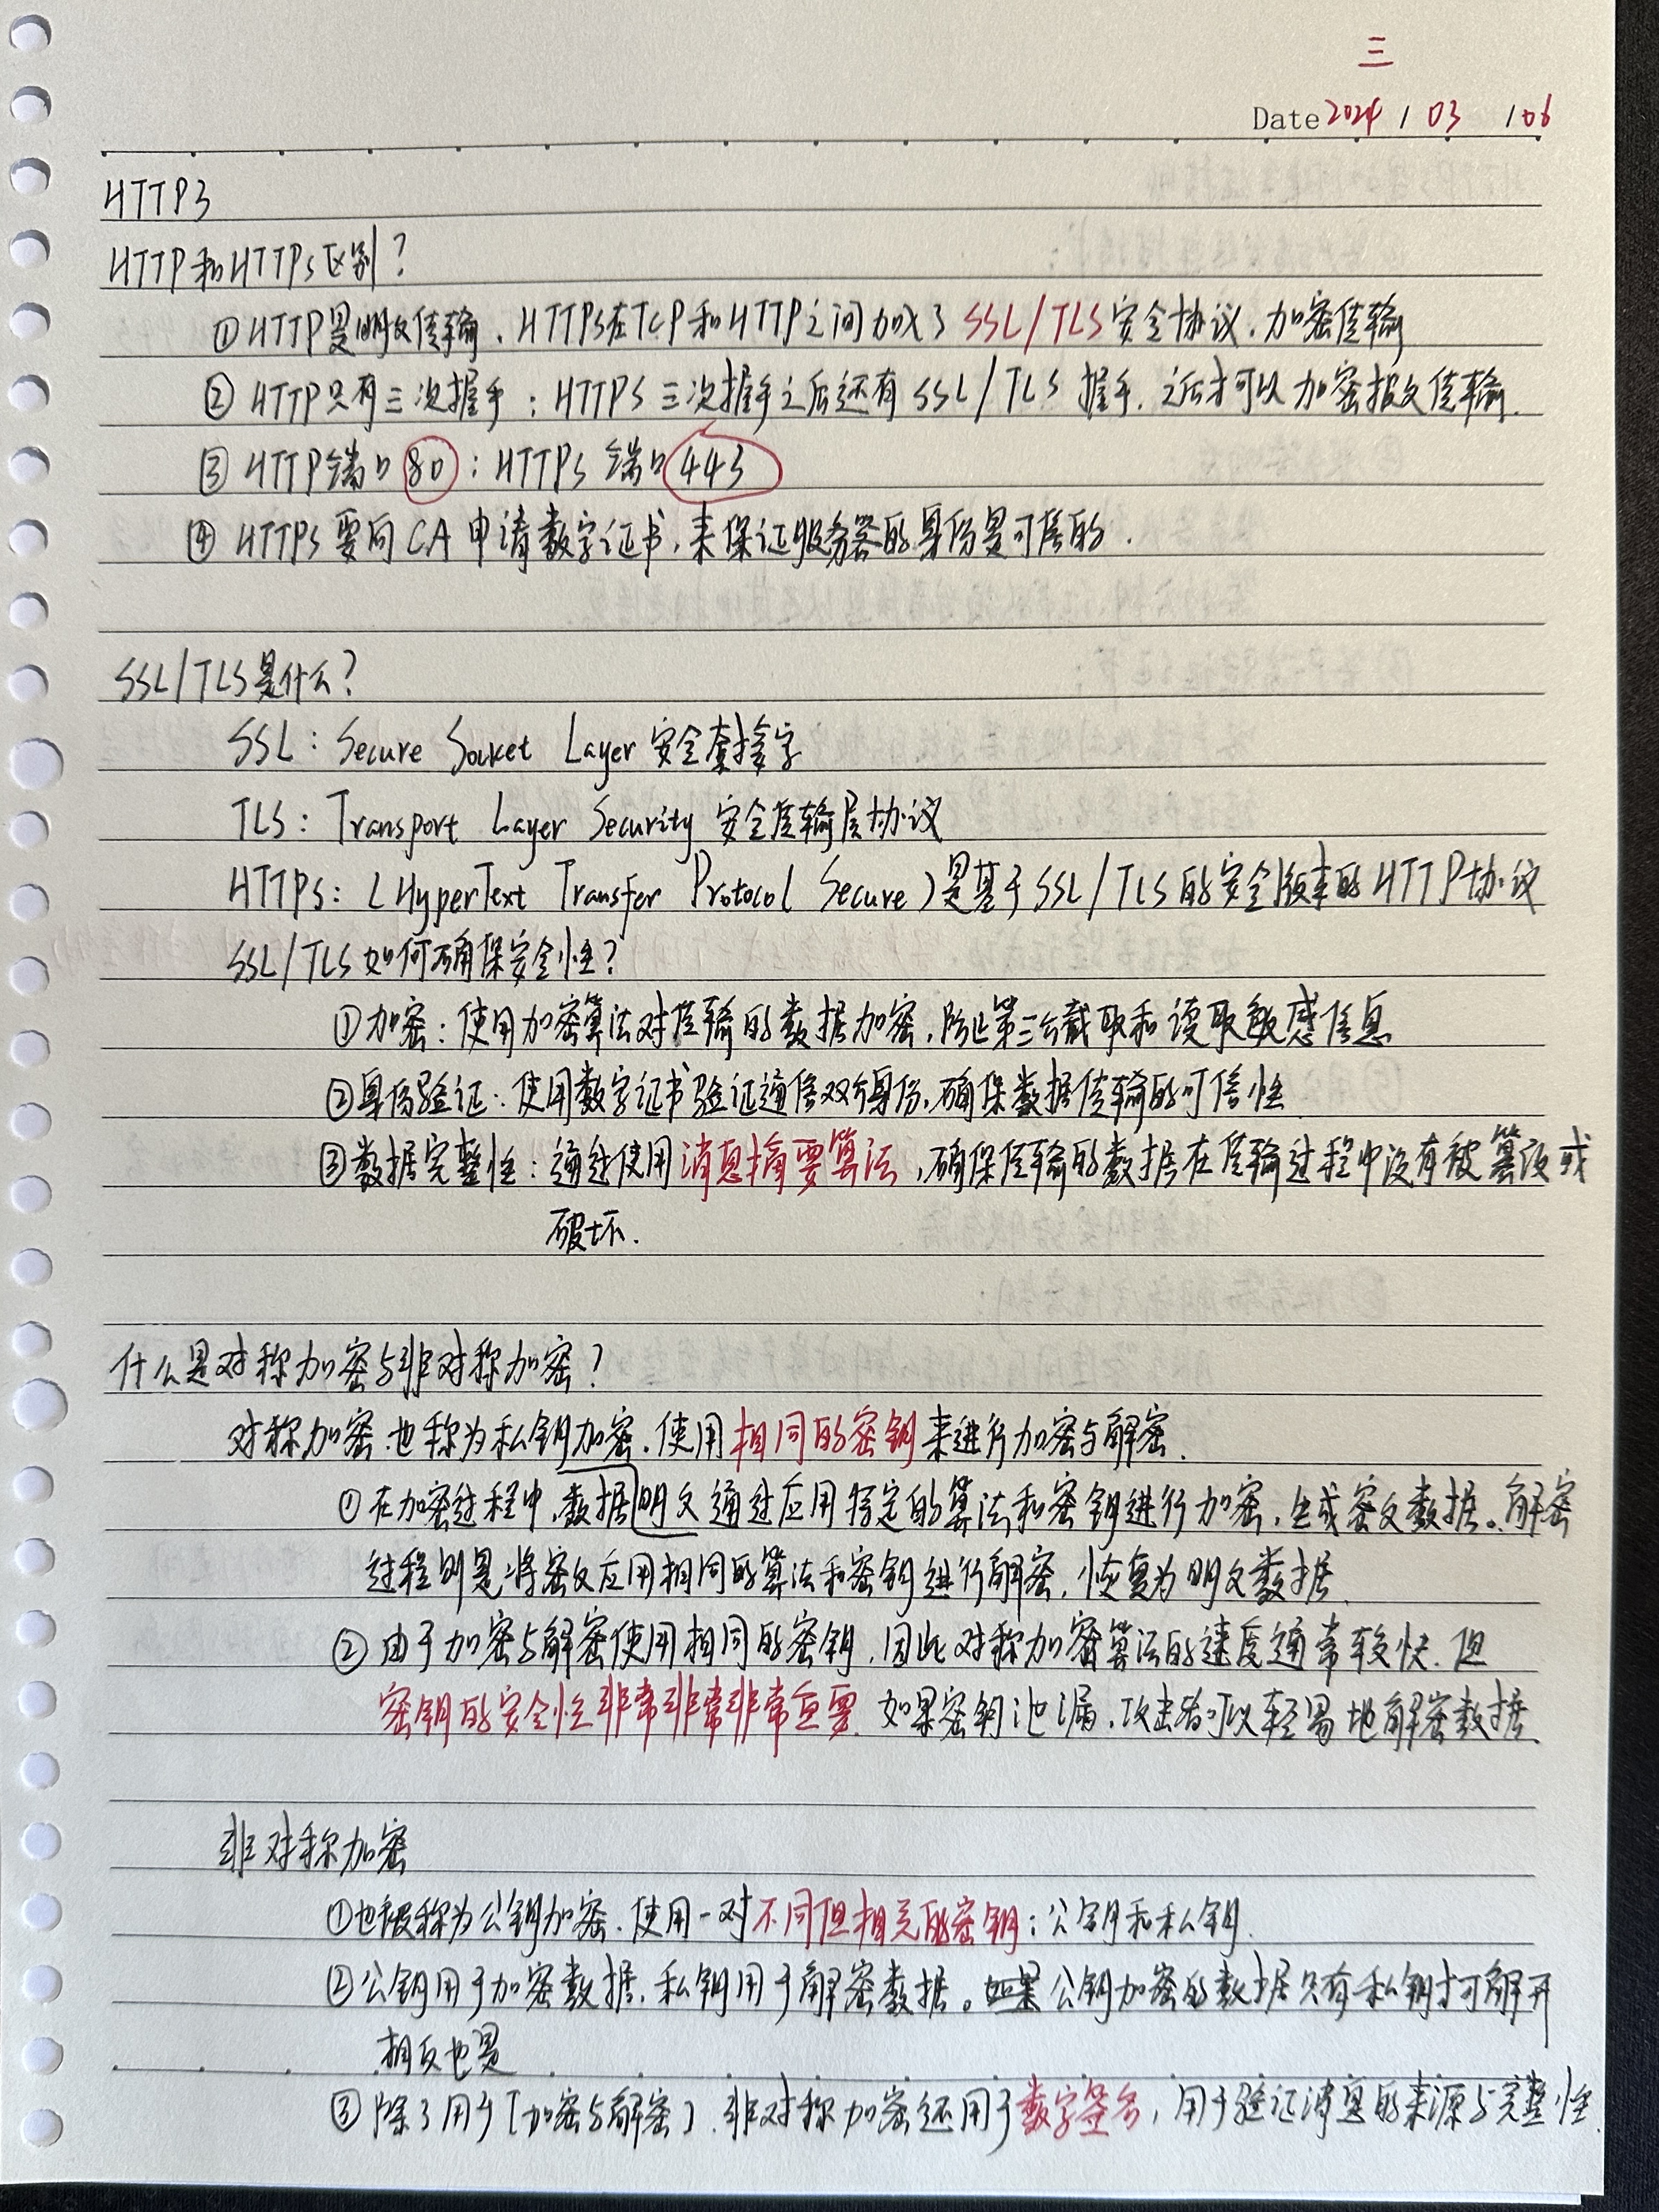 三
Date 2024 / 03 / 06
HTTP3
HTTP和HTTPs区别？
①HTTP是明文传输，HTTPs在TCP和HTTP之间加入了SSL/TLS安全协议，加密传输
② HTTP只有三次握手；HTTPS三次握手之后还有SSL/TLS握手，之后才可以加密报文传输.
③ HTTP端口80；HTTPs端口443
④ HTTPs要向CA申请数字证书，来保证服务器的身份是可信的.
SSL/TLS是什么？
SSL：Secure Socket Layer 安全套接字
TLS：Transport Layer Security 安全传输层协议
HTTPs：（HyperText Transfer Protocol Secure）是基于SSL/TLS的安全版本的HTTP协议
SSL/TLS如何确保安全性？
①加密：使用加密算法对传输的数据加密，防止第三方截取和读取敏感信息
②身份验证：使用数字证书验证通信双方身份，确保数据传输的可信性
③数据完整性：通过使用消息摘要算法，确保传输的数据在传输过程中没有被篡改或
破坏.
什么是对称加密与非对称加密？
对称加密也称为私钥加密，使用相同的密钥来进行加密与解密.
①在加密过程中，数据明文通过应用特定的算法和密钥进行加密，生成密文数据。解密
过程则是将密文应用相同的算法和密钥进行解密，恢复为明文数据.
②由于加密与解密使用相同的密钥，因此对称加密算法的速度通常较快.但
密钥的安全性非常非常非常重要.如果密钥泄漏，攻击者可以轻易地解密数据.
非对称加密
①也被称为公钥加密.使用一对不同但相关的密钥：公钥和私钥.
②公钥用于加密数据，私钥用于解密数据。如果公钥加密的数据只有私钥才可解开
相反也是
③除了用于「加密与解密」，非对称加密还用于数字签名，用于验证消息的来源与完整性.